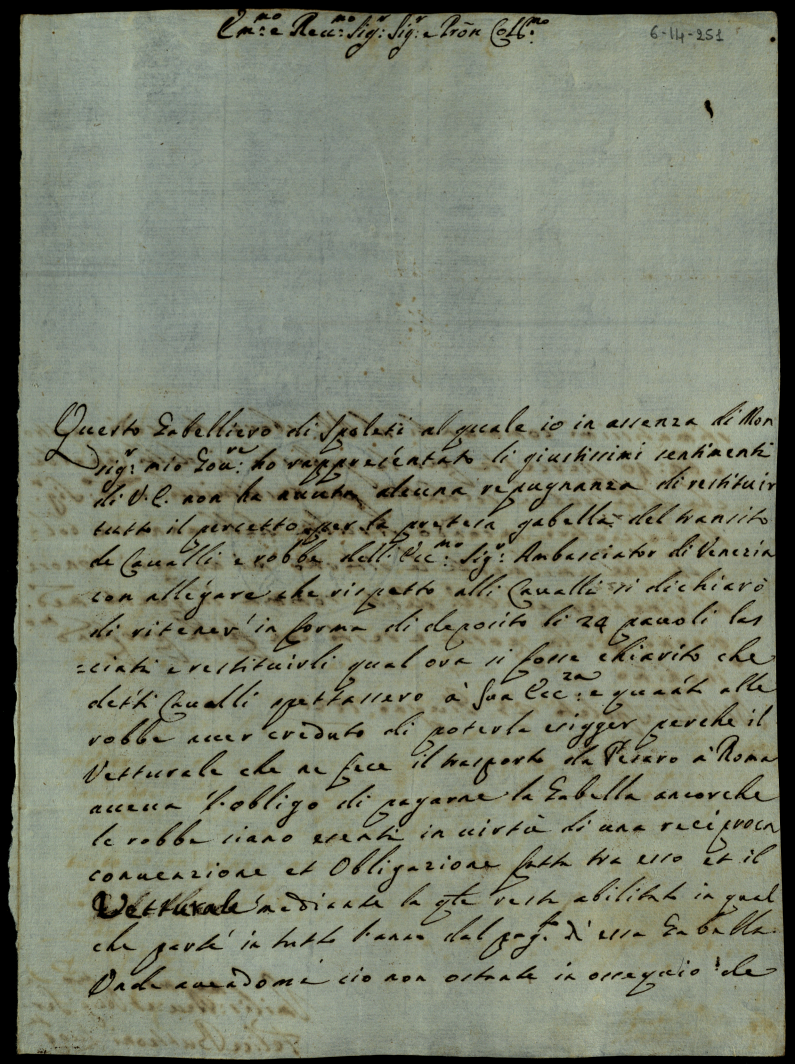 Em.mo e Reu.mo Sig.r Sig.r e Prōn Coll.mo
6-14-251
Questo Gabelliero di Spoleti al quale io in assenza di Mon
sig.r mio Gou.re ho rappresentato li giustissimi sentimenti
di V.E. non ha auuta alcuna repugnanza di restituir
tutto il percetto per la pretesa gabella del transito
de Caualli e robbe dell'Ecc.mo Sig.r Ambasciator di Venezia
con allegare che rispetto alli Caualli si dichiarò
di ritener in forma di deposito li 24 pauoli las
=ciati e restituirli qual ora si fosse chiarito che
detti Caualli spettassero à Sua Ecc.za e quanto alle
robbe auer creduto di poterla esigger perche il
Vetturale che ne fece il trasporto da Pesaro à Roma
aueua l'obligo di pagarne la Gabella ancorche
le robbe siano esenti in uirtù di una reciproca
conuenzione et Obligazione fatta tra esso et il
Vetturale mediante la qle resta abilitato in qual
che parte in tutto l'anno dal pag.to di essa Gabella
Onde auendomi ciò non ostante in ossequio de